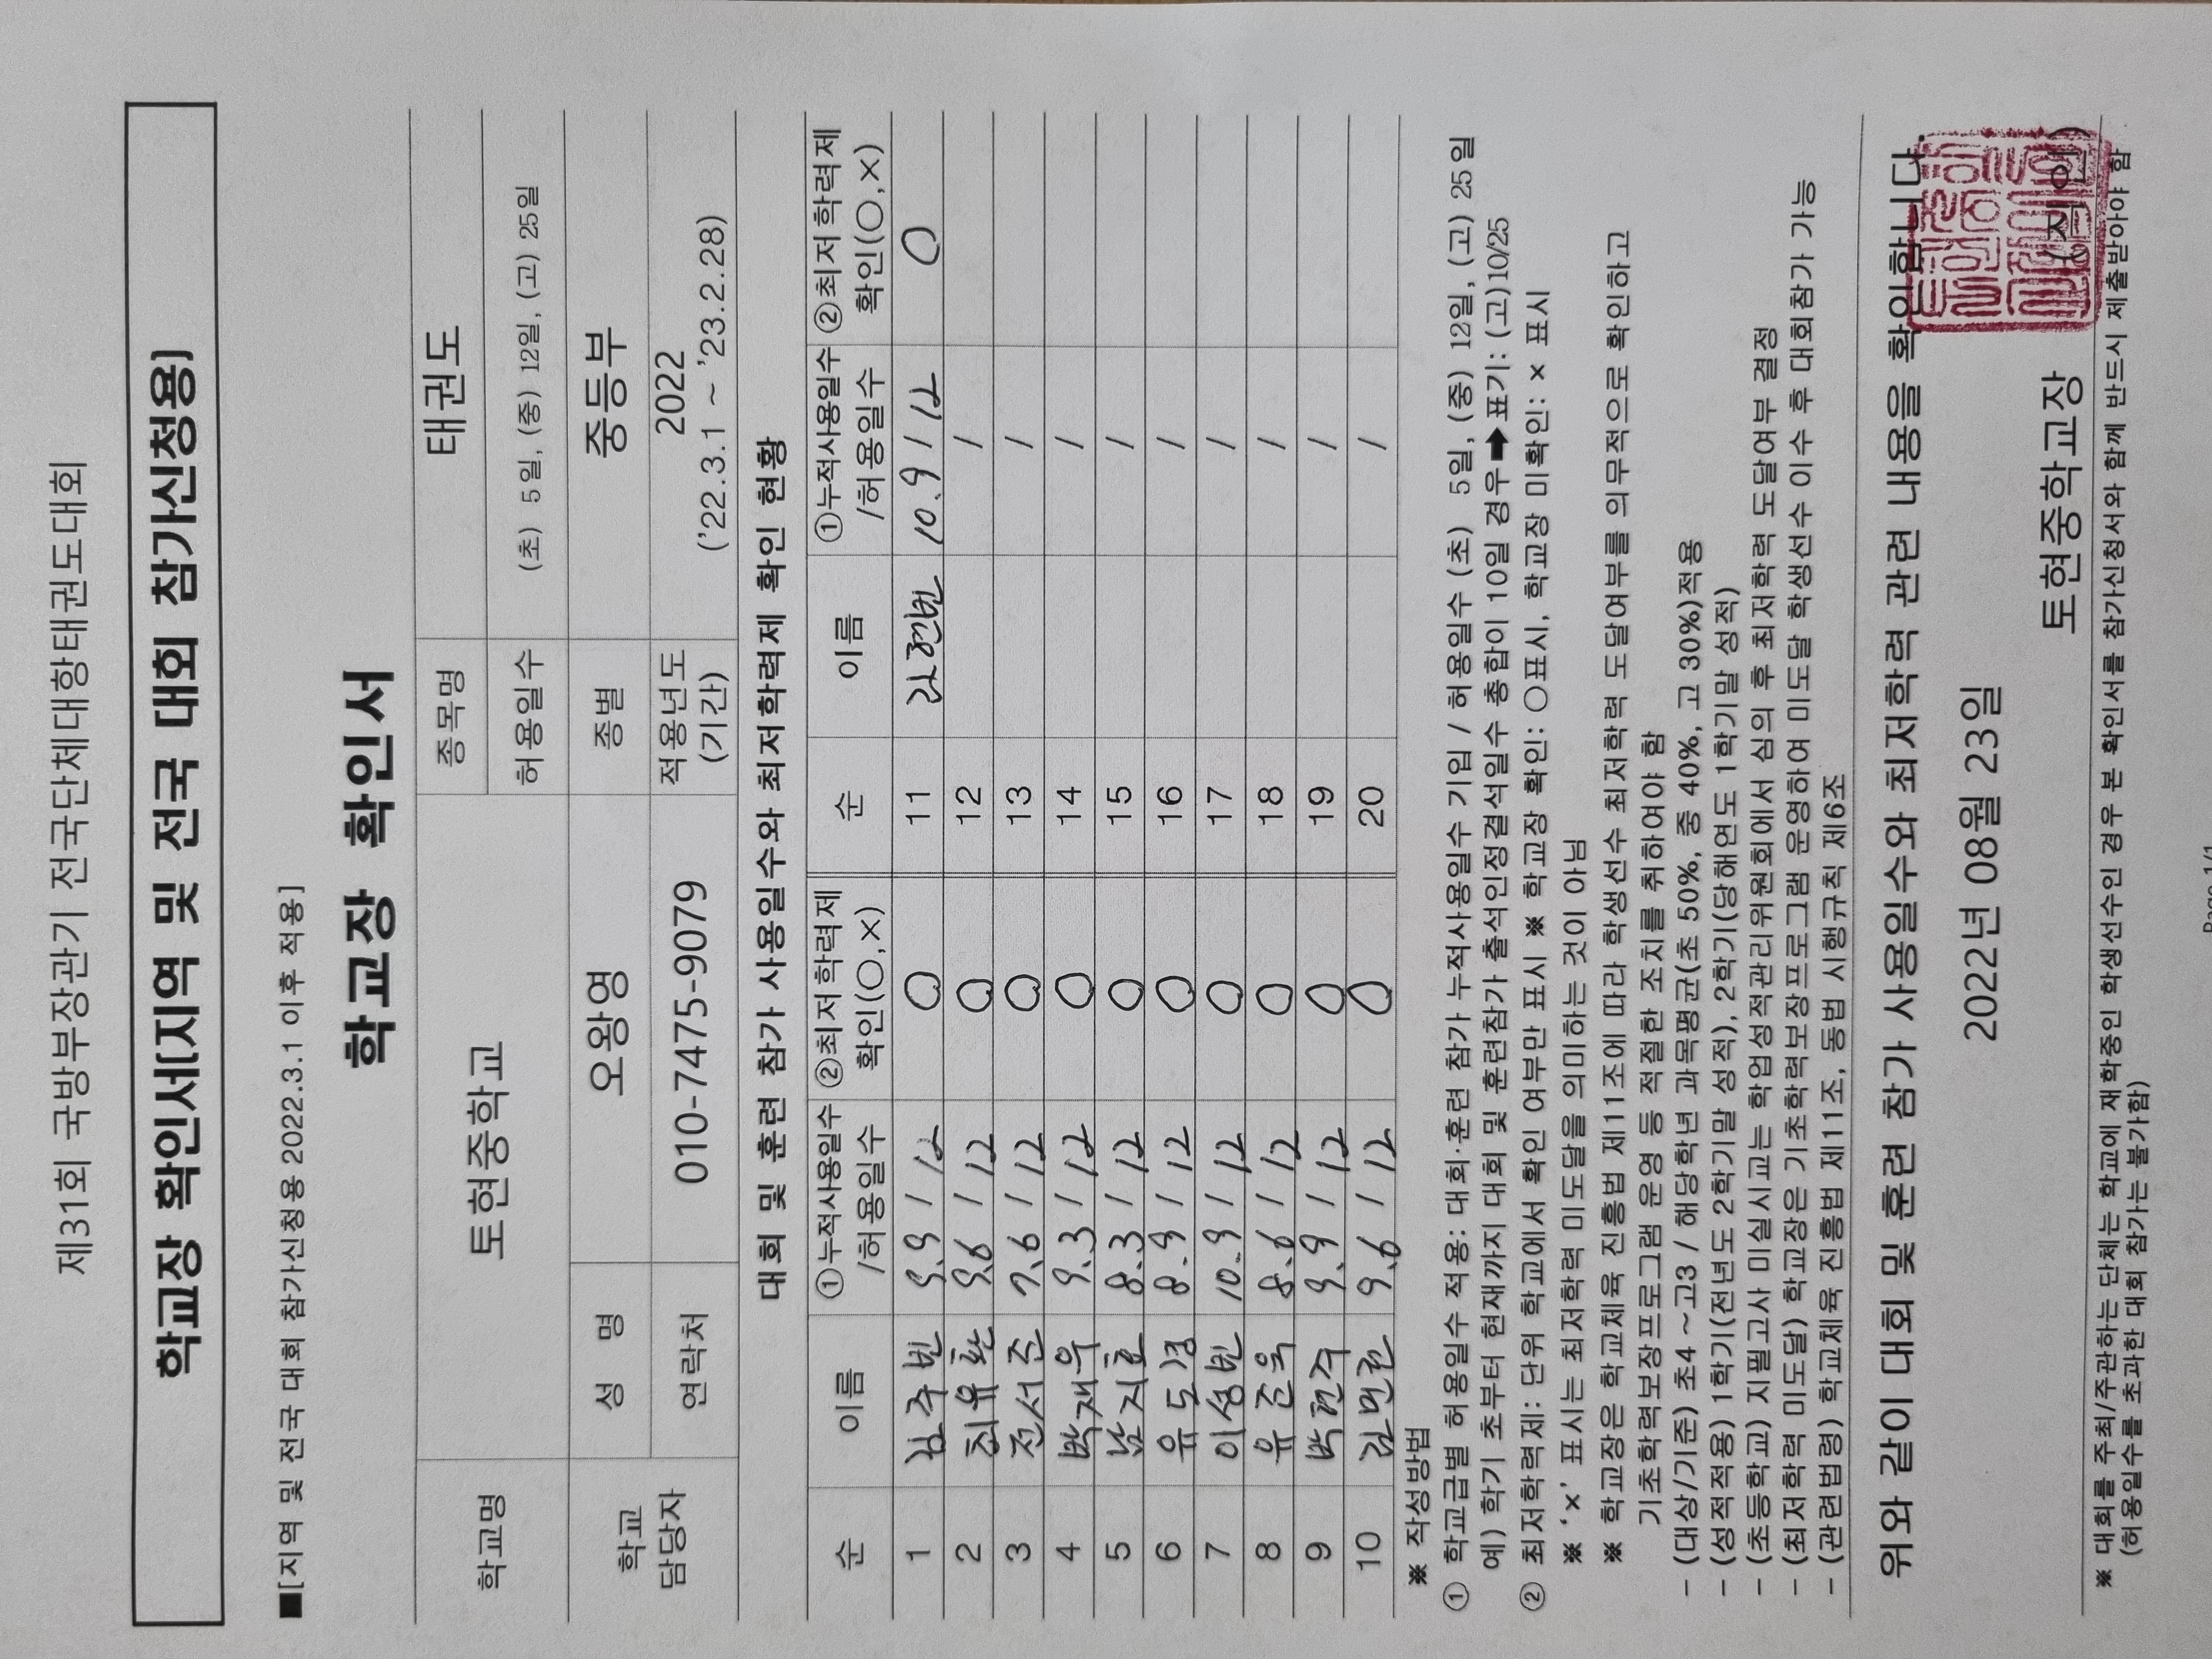 제31회 국방부장관기 전국단체대항태권도대회
학교장 확인서[지역 및 전국 대회 참가신청용]
■[지역 및 전국 대회 참가신청용 2022.3.1 이후 적용]
학교장 확인서
학교명 토현중학교 종목명 태권도
허용일수 (초) 5일, (중) 12일, (고) 25일
학교 담당자 성 명 오왕영 종별 중등부
연락처 010-7475-9079 적용년도 (기간) 2022 ('22.3.1 ~ '23.2.28)
대회 및 훈련 참가 사용일수와 최저학력제 확인 현황
순 이름 ①누적사용일수 /허용일수 ②최저학력제 확인(○,×) 순 이름 ①누적사용일수 /허용일수 ②최저학력제 확인(○,×)
1 김주빈 9.9 / 12 ○ 11 김현빈 10.9 / 12 ○
2 최유환 9.6 / 12 ○ 12 /
3 전서준 7.6 / 12 ○ 13 /
4 박재우 9.3 / 12 ○ 14 /
5 남지효 8.3 / 12 ○ 15 /
6 유도경 8.9 / 12 ○ 16 /
7 이성빈 10.9 / 12 ○ 17 /
8 유준욱 8.6 / 12 ○ 18 /
9 박현수 9.9 / 12 ○ 19 /
10 김민권 9.6 / 12 ○ 20 /
※ 작성방법
① 학교급별 허용일수 적용: 대회·훈련 참가 누적사용일수 기입 / 허용일수 (초) 5일, (중) 12일, (고) 25일
예) 학기 초부터 현재까지 대회 및 훈련참가 출석인정결석일수 총합이 10일 경우 ➡ 표기: (고)10/25
② 최저학력제: 단위 학교에서 확인 여부만 표시 ※ 학교장 확인: ○표시, 학교장 미확인: × 표시
※ '×' 표시는 최저학력 미도달을 의미하는 것이 아님
※ 학교장은 학교체육 진흥법 제11조에 따라 학생선수 최저학력 도달여부를 의무적으로 확인하고
기초학력보장프로그램 운영 등 적절한 조치를 취하여야 함
- (대상/기준) 초4 ~고3 / 해당학년 과목평균(초 50%, 중 40%, 고 30%)적용
- (성적적용) 1학기(전년도 2학기말 성적), 2학기(당해연도 1학기말 성적)
- (초등학교) 지필고사 미실시교는 학업성적관리위원회에서 심의 후 최저학력 도달여부 결정
- (최저학력 미도달) 학교장은 기초학력보장프로그램 운영하여 미도달 학생선수 이수 후 대회참가 가능
- (관련법령) 학교체육 진흥법 제11조, 동법 시행규칙 제6조
위와 같이 대회 및 훈련 참가 사용일수와 최저학력 관련 내용을 확인합니다.
2022년 08월 23일
토현중학교장 (직인)
※ 대회를 주최/주관하는 단체는 학교에 재학중인 학생선수인 경우 본 확인서를 참가신청서와 함께 반드시 제출받아야 함
(허용일수를 초과한 대회 참가는 불가함)
Page 1/1